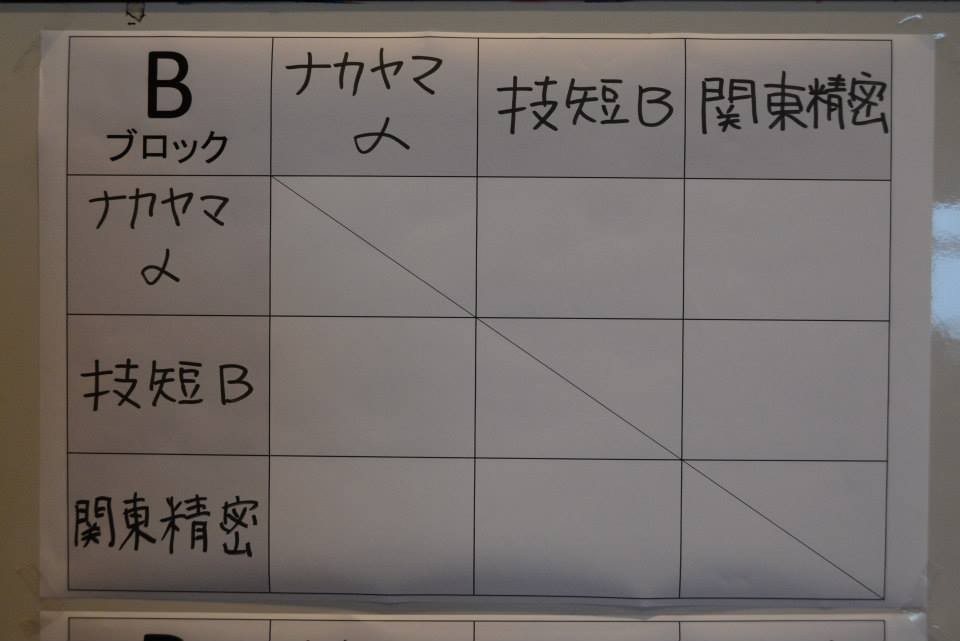 B
ブロック
ナカヤマ
〆
技短B
関東精密
ナカヤマ
〆
技短B
関東精密